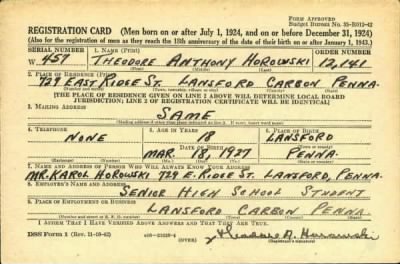 FORM APPROVED
Budget Bureau No. 33-R012-42
REGISTRATION CARD—(Men born on or after July 1, 1924, and on or before December 31, 1924)
(Also for the registration of men as they reach the 18th anniversary of the date of their birth on or after January 1, 1943.)
SERIAL NUMBER
1. NAME (Print)
ORDER NUMBER
W 457
THEODORE ANTHONY HOROWSKI
12,141
2. PLACE OF RESIDENCE (Print)
729 EAST RIDGE ST. LANSFORD CARBON PENNA.
(Number and street) (Town, township, village, or city) (County) (State)
[THE PLACE OF RESIDENCE GIVEN ON LINE 2 ABOVE WILL DETERMINE LOCAL BOARD
JURISDICTION; LINE 2 OF REGISTRATION CERTIFICATE WILL BE IDENTICAL]
3. MAILING ADDRESS
SAME
[Mailing address if other than place indicated on line 2. If same, insert word same]
4. TELEPHONE
5. AGE IN YEARS
6. PLACE OF BIRTH
NONE
18
LANSFORD
DATE OF BIRTH
MAR. 18 1927
PENNA.
7. NAME AND ADDRESS OF PERSON WHO WILL ALWAYS KNOW YOUR ADDRESS
MR. KAROL HOROWSKI 729 E. RIDGE ST. LANSFORD, PENNA.
8. EMPLOYER'S NAME AND ADDRESS
SENIOR HIGH SCHOOL STUDENT
9. PLACE OF EMPLOYMENT OR BUSINESS
LANSFORD CARBON PENNA.
(Number and street or R. F. D. number) (Town) (County) (State)
I AFFIRM THAT I HAVE VERIFIED ABOVE ANSWERS AND THAT THEY ARE TRUE.
DSS Form 1 (Rev. 11-16-42)
(OVER)
Theodore A. Horowski
(Registrant's signature)